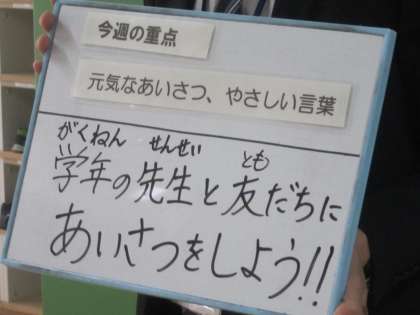 今週の重点
元気なあいさつ、やさしい言葉
がくねん せんせい とも
学年の先生と友だちに
あいさつをしよう!!